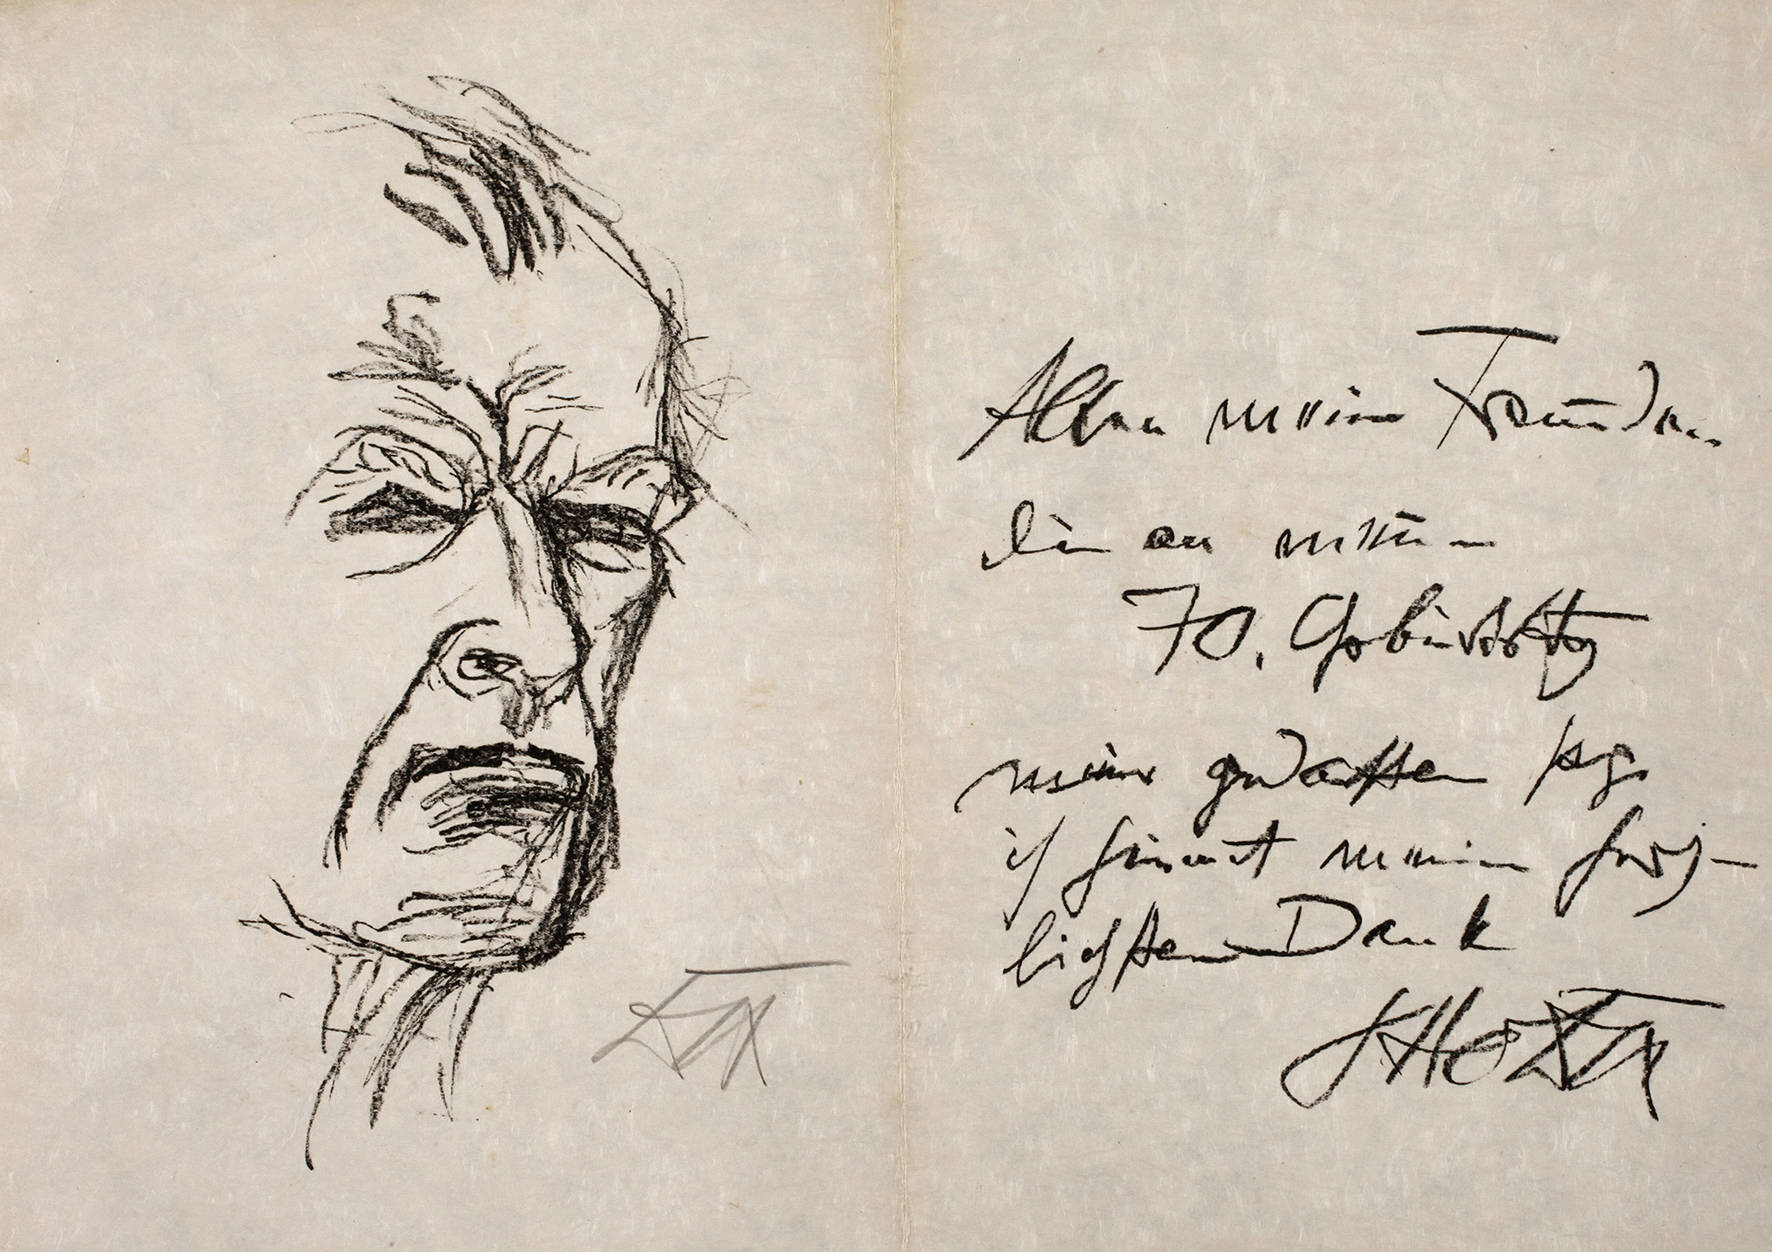 Allen meinen Freunden
die an meinen
70. Geburtstag
meiner gedachten sage
ich hiermit meinen herz-
lichsten Dank